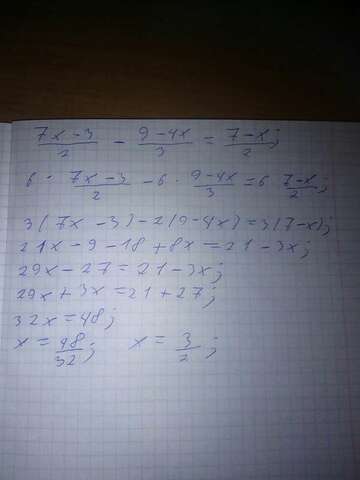 (7x-3)/2 - (9-4x)/3 = (7-x)/2;
6 · (7x-3)/2 - 6 · (9-4x)/3 = 6 (7-x)/2;
3(7x-3)-2(9-4x)=3(7-x);
21x-9-18+8x=21-3x;
29x-27=21-3x;
29x+3x=21+27;
32x=48;
x=48/32; x=3/2;